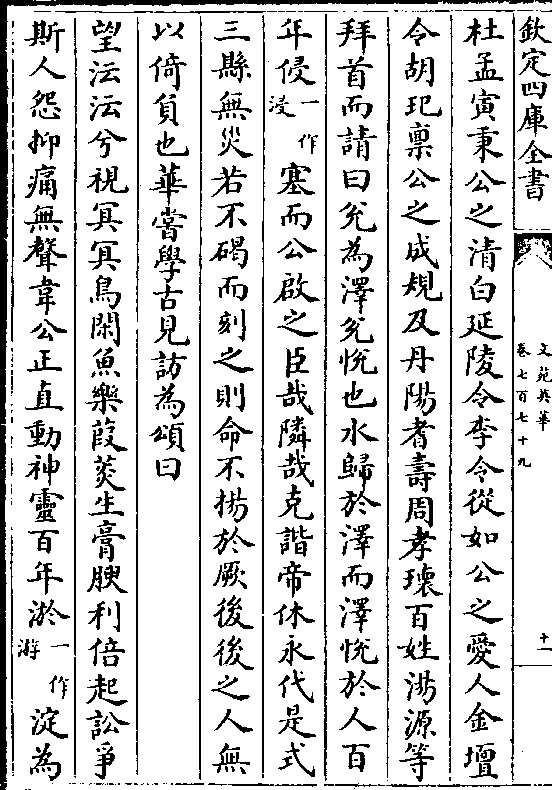 欽定四庫全書
文苑英華
卷七百七十九
十一
杜孟寅秉公之清白延陵令李令從如公之愛人金壇
令胡玘稟公之成規及丹陽耆壽周孝瓌百姓湯源等
拜首而請曰兊為澤兊悅也水歸於澤而澤悅於人百
年侵一作浸塞而公啟之臣哉隣哉克諧帝休永代是式
三縣無災若不碣而刻之則命不揚於厥後後之人無
以倚負也華嘗學古見訪為頌曰
望沄沄兮視冥冥鳥閑魚樂葭菼生膏腴利倍起訟爭
斯人怨抑痛無聲韋公正直動神靈百年淤一作游淀為